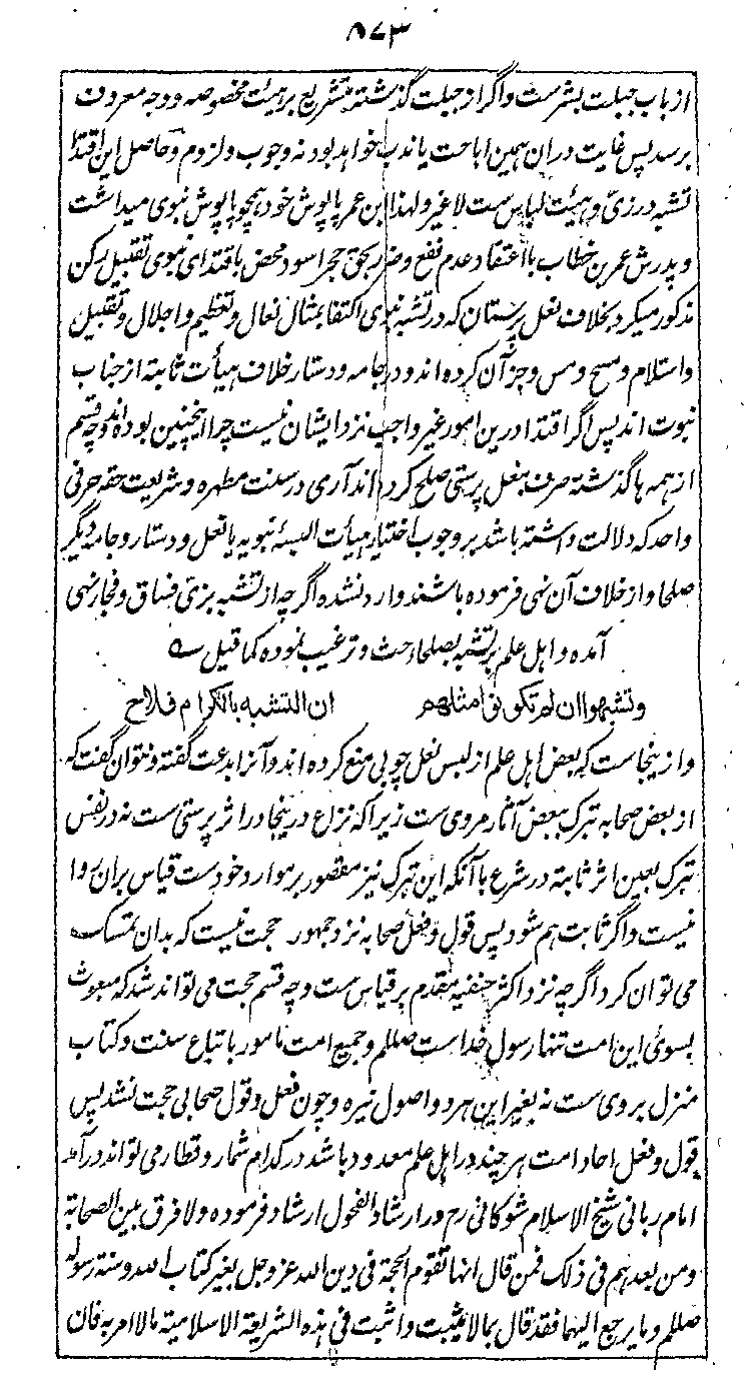 ۸۷۳
از باب جبلت بشر ست و اگر از جبلت گذشته بتشریع بر هیئت مخصوصه و وجه معروف
برسد پس غایت دران همین اباحت یا ندب خواهد بود نه وجوب و لزوم و حاصل این اقتدا
تشبه در زیّ و هیئت لباس ست لا غیر و لهذا ابن عمر پاپوش خود همچو پاپوش نبوی میداشت
و پدرش عمر بن خطاب با اعتقاد عدم نفع و ضرر بحق حجر اسود محض باقتدای نبوی تقبیل رکن
مذکور میکرد بخلاف نعل پرستان که در تشبه نبوی اکتفا بمثال نعال و تعظیم و اجلال و تقبیل
و استلام و مسح و مس و جز آن کرده اند و در جامه و دستار خلاف هیأت ثابته از جناب
نبوت اند پس اگر اقتدا درین امور غیر واجب نزد ایشان نیست چرا اینچنین بوده اند و چه قسم
از همه ها گذشته صرف بنعل پرستی صلح کرده اند آری در سنت مطهره و شریعت حقه حرفی
واحد که دلالت داشته باشد بر وجوب اختیار هیأت البسۀ نبویه یا نعل و دستار و جامه دیگر
صلحا و از خلاف آن نهی فرموده باشند وارد نشده اگر چه از تشبه بزیّ فساق و فجار نهی
آمده و اهل علم بر تشبه بصلحا حث و ترغیب نموده کما قیل ؎
وتشبهوا ان لم تكونوا مثلهم ان التشبه بالكرام فلاح
و ازینجاست که بعض اهل علم از لبس نعل چوبی منع کرده اند و آنرا بدعت گفته و نتوان گفت که
از بعض صحابه تبرک ببعض آثار مروی ست زیرا که نزاع درینجا در اثر پرستی ست نه در نفس
تبرک بعین اثر ثابته در شرع با آنکه این تبرک نیز مقصور بر موارد خود ست قیاس بران روا
نیست و اگر ثابت هم شود پس قول و فعل صحابه نزد جمهور حجت نیست که بدان تمسک
می توان کرد اگر چه نزد اکثر حنفیه مقدم بر قیاس ست و چه قسم حجت می تواند شد که مبعوث
بسوی این امت تنها رسول خداست صللم و جمیع امت مامور باتباع سنت و کتاب
منزل بر وی ست نه بغیر این هر دو اصول نیره و چون فعل و قول صحابی حجت نشد پس
قول و فعل احاد امت هر چند در اهل علم معدود باشد در کدام شمار و قطار می تواند در آمد
امام ربانی شیخ الاسلام شوکانی رح در ارشاد الفحول ارشاد فرموده ولا فرق بين الصحابة
ومن بعدهم في ذلك فمن قال انها تقوم الحجة في دين الله عز وجل بغير كتاب الله وسنة رسوله
صللم وما يرجع اليهما فقد قال بما لا يثبت واثبت في هذه الشريعة الاسلامية ما لا امر به فان